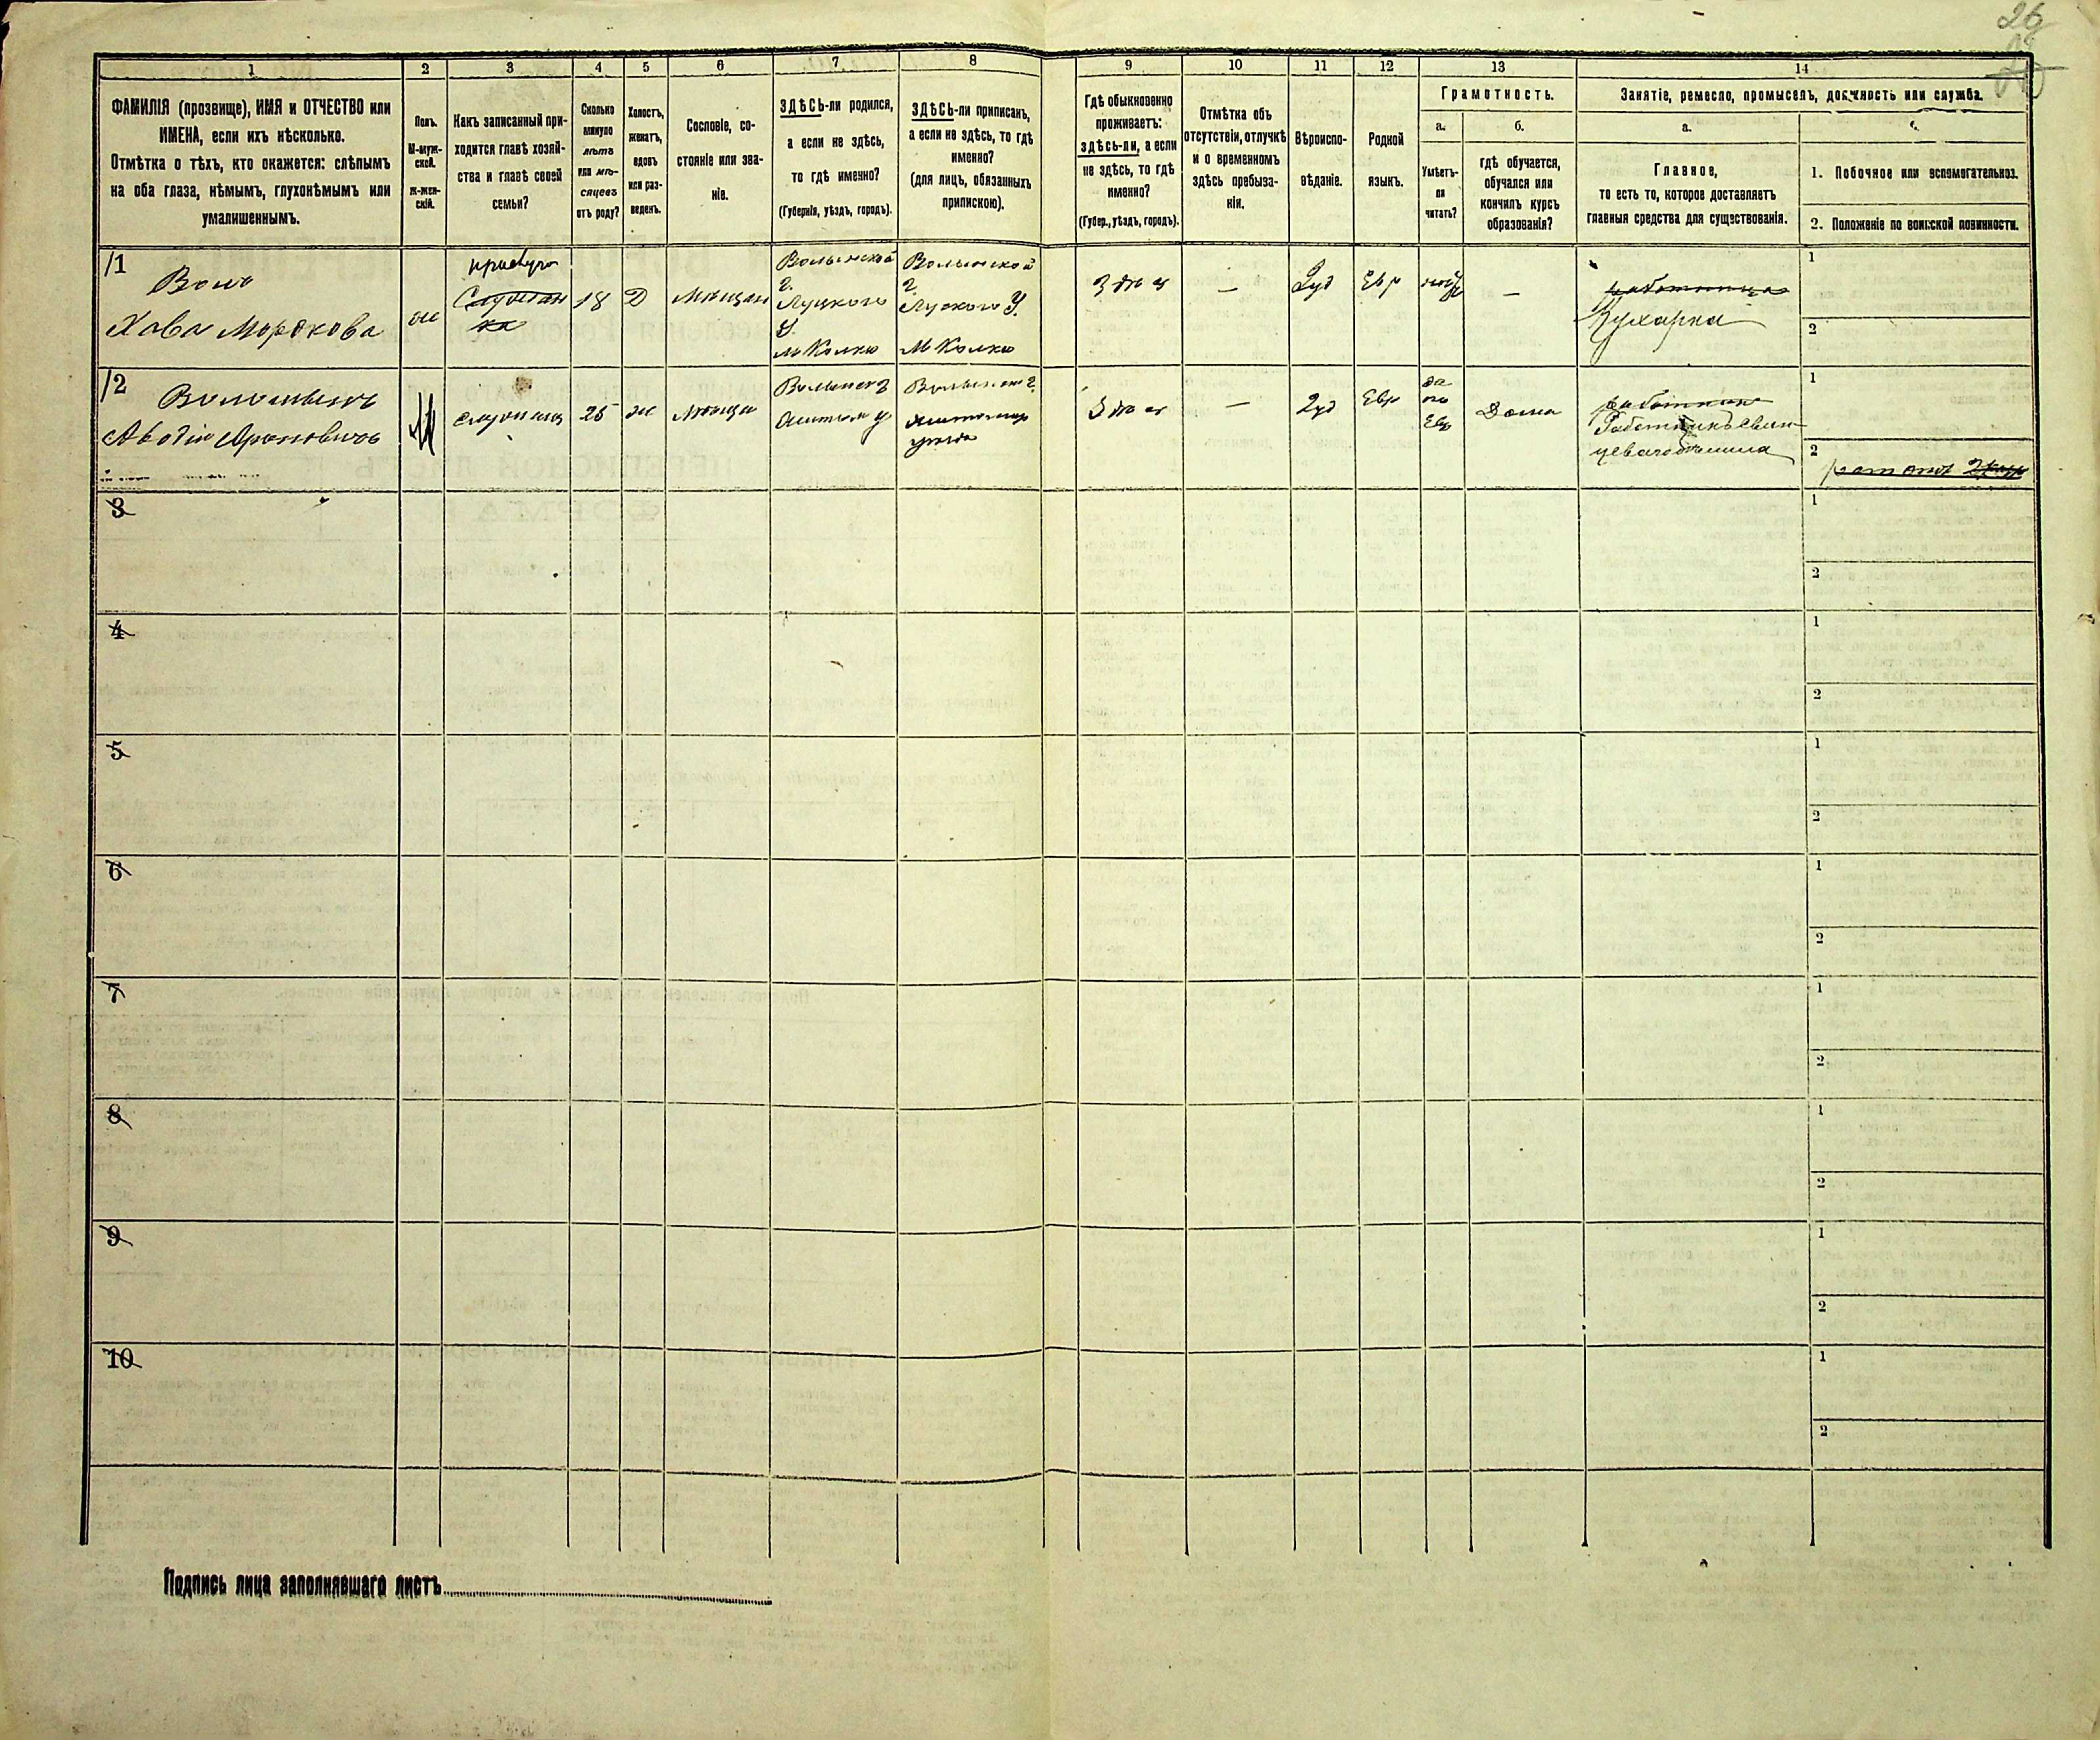 26
1
2
3
4
5
6
7
8
9
10
11
12
13
14
ФАМИЛІЯ (прозвище), ИМЯ и ОТЧЕСТВО или
ИМЕНА, если ихъ нѣсколько.
Отмѣтка о тѣхъ, кто окажется: слѣпымъ
на оба глаза, нѣмымъ, глухонѣмымъ или
умалишеннымъ.
Полъ.
М-муж-
ской.
Ж-жен-
скій.
Какъ записанный при-
ходится главѣ хозяй-
ства и главѣ своей
семьи?
Сколько
минуло
лѣтъ
или мѣ-
сяцевъ
отъ роду?
Холостъ,
женатъ,
вдовъ
или раз-
веденъ.
Сословіе, со-
стояніе или зва-
ніе.
ЗДѢСЬ-ли родился,
а если не здѣсь,
то гдѣ именно?
(Губернія, уѣздъ, городъ).
ЗДѢСЬ-ли приписанъ,
а если не здѣсь, то гдѣ
именно?
(для лицъ, обязанныхъ
припискою).
Гдѣ обыкновенно
проживаетъ:
здѣсь-ли, а если
не здѣсь, то гдѣ
именно?
(Губер., уѣздъ, городъ).
Отмѣтка объ
отсутствіи, отлучкѣ
и о временномъ
здѣсь пребыва-
ніи.
Вѣроиспо-
вѣданіе.
Родной
языкъ.
Грамотность.
а.
б.
Умѣетъ-
ли
читать?
гдѣ обучается,
обучался или
кончилъ курсъ
образованія?
Занятіе, ремесло, промыселъ, должность или служба.
а.
Главное,
то есть то, которое доставляетъ
главныя средства для существованія.
1. Побочное или вспомогательноe.
2. Положеніе по воинской повинности.
1
Хава Мордкова
ж
прислуга
18
Д
Мѣщан
Волынской
г.
Луцкого
у.
м Колки
Волынской
г.
Луцкого у.
м Колки
Здѣсь
—
Іуд
Евр
—
работница
Кухарка
1
2
2
М
25
ж
Здѣсь
—
Іуд
Евр
да
по
Евр
Дома
работникъ
1
2
3
1
2
4
1
2
5
1
2
6
1
2
7
1
2
8
1
2
9
1
2
10
1
2
Подпись лица заполнявшаго листъ